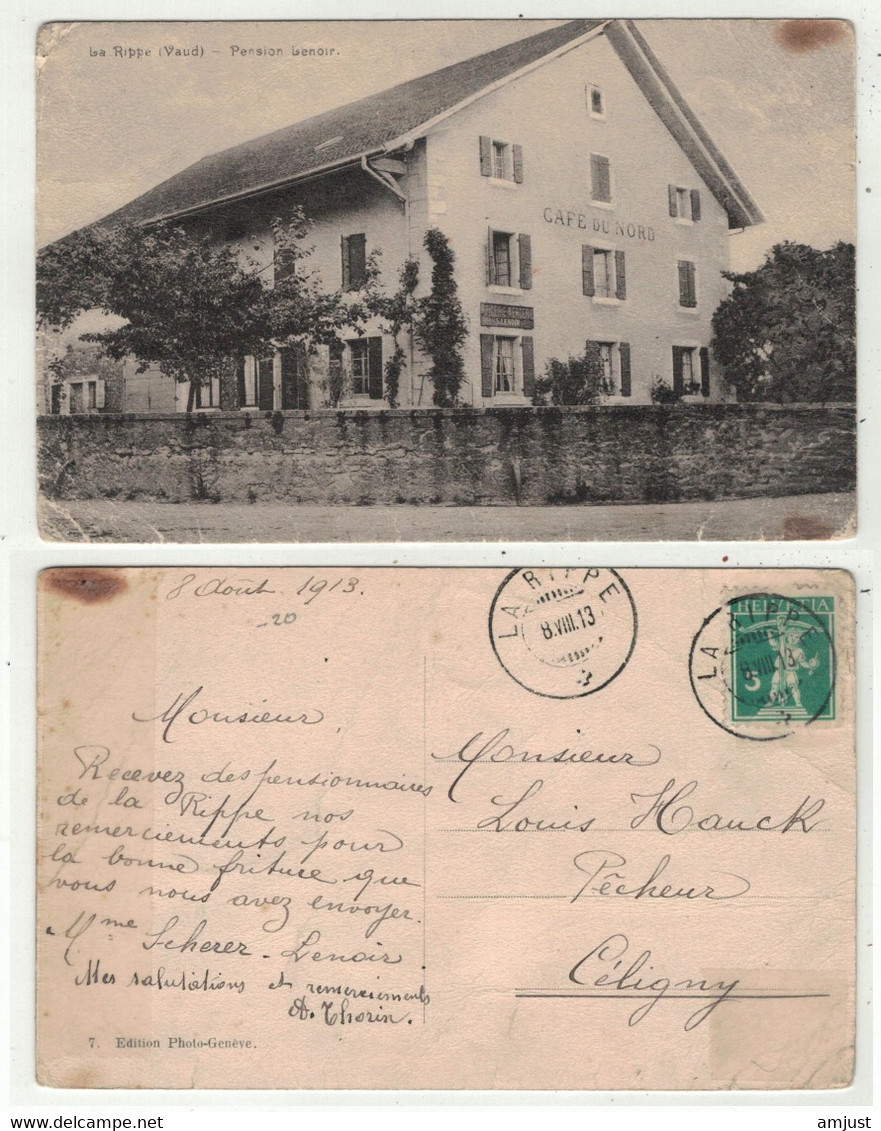 La Rippe (Vaud) – Pension Lenoir.
CAFE DU NORD
LENOIR
8 Août 1913.
-20
LA RIPPE
8.VIII.13
HELVETIA
5
LA RIPPE
8.VIII.13
Monsieur
Recevez des pensionnaires
de la Rippe nos
remerciements pour
la bonne friture que
vous nous avez envoyer.
Mme Scherer-Lenoir
Mes salutations et remerciements
A. Thorin.
Monsieur
Louis Hauck
Pêcheur
Céligny
7. Edition Photo-Genève.
amjust